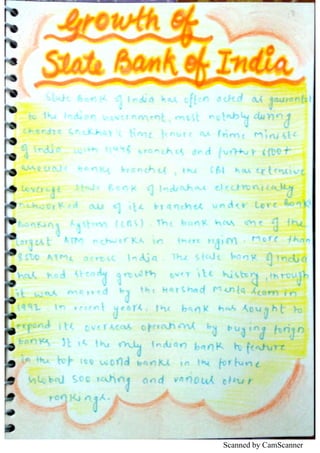 Growth of
State Bank of India
State Bank of India has often acted as guarantor
to the Indian Government, most notably during
Chandra Shekhar's time tenure as Prime Ministe
of India. With branches and further
associate banks branches, the SBI has extensive
coverage State Bank of India has electronically
networked all of its branches under Core Bank
Banking System (CBS). The bank has one of the
largest ATM networks in there region. More than
8500 ATMs across India. The state bank of India
has had steady growth over its history, through
it was marred by the Harshad Mehta scam in
1992. In recent years, the bank has sought to
expand its overseas operations by buying foreign
banks. It is the only Indian bank to feature
in the top 100 world banks in the fortune
Global 500 rating and various other
rankings.
Scanned by CamScanner